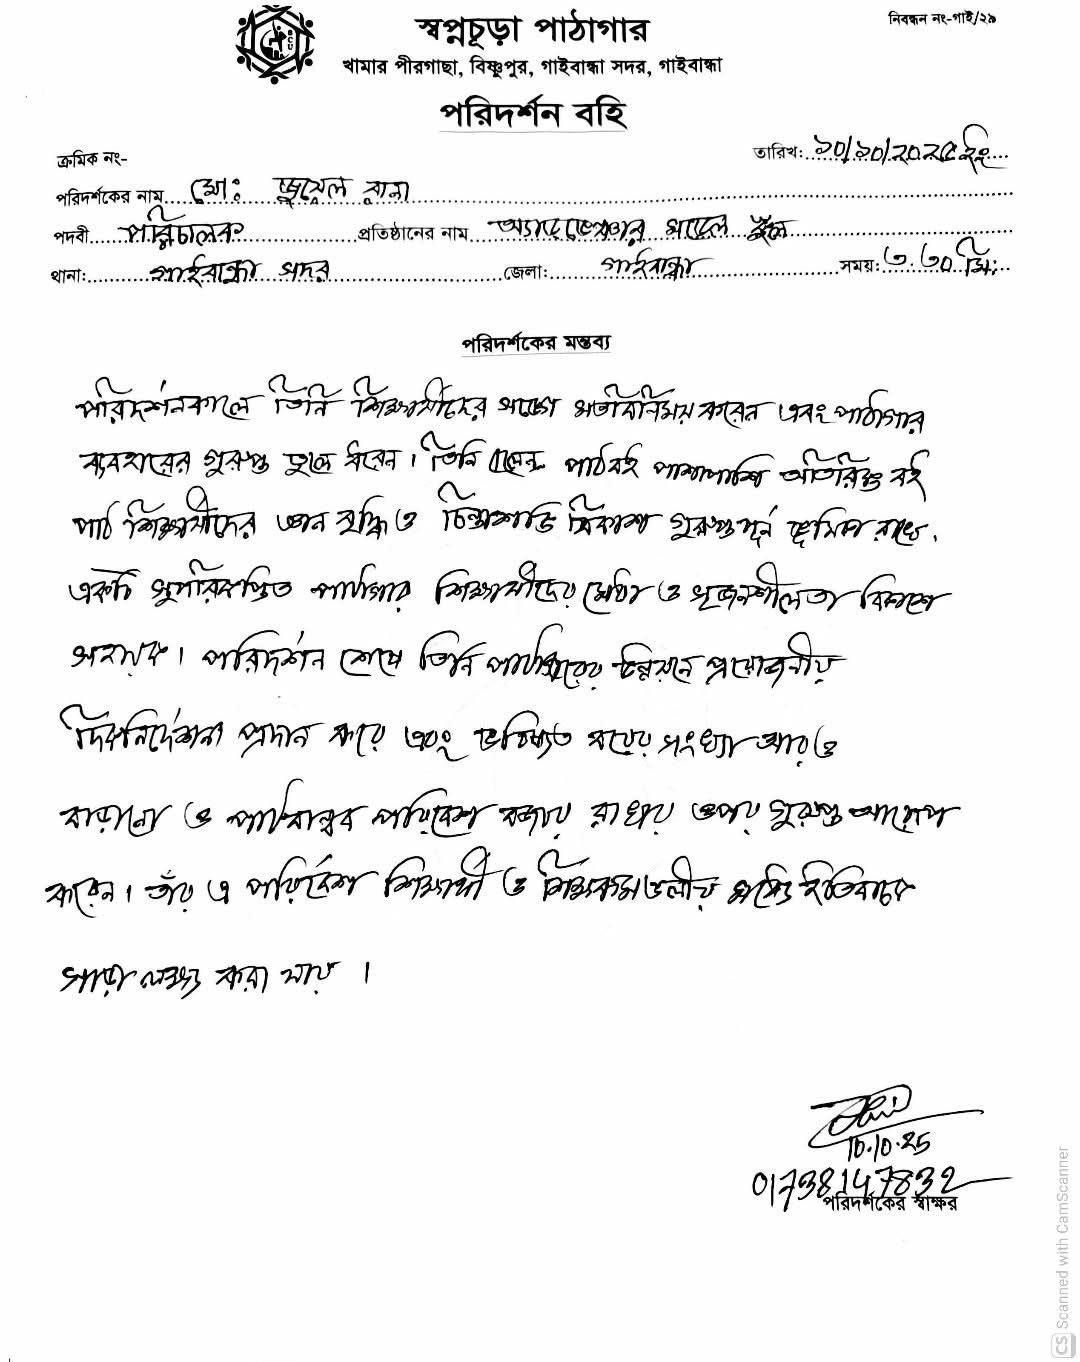 স্বপ্নচূড়া পাঠাগার
নিবন্ধন নং-গাই/২৯
খামার পীরগাছা, বিষ্ণুপুর, গাইবান্ধা সদর, গাইবান্ধা
পরিদর্শন বহি
ক্রমিক নং-
তারিখ: ১০/১০/২০২৫ ইং
পরিদর্শকের নাম মোঃ জুয়েল রানা
পদবী পরিচালক প্রতিষ্ঠানের নাম মডেল স্কুল
থানা: গাইবান্ধা সদর জেলা: গাইবান্ধা সময়: ৩.৩০ মি:
পরিদর্শকের মন্তব্য
পরিদর্শনকালে তিনি শিক্ষার্থীদের সাথে মতবিনিময় করেন এবং পাঠাগার
ব্যবহারের গুরুত্ব তুলে ধরেন। তিনি বলেন পাঠ্যবই পাশাপাশি অতিরিক্ত বই
পাঠ শিক্ষার্থীদের জ্ঞান বৃদ্ধি ও চিন্তাশক্তি বিকাশে গুরুত্বপূর্ন ভূমিকা রাখে.
একটি সুপরিকল্পিত পাঠাগার শিক্ষার্থীদের মেধা ও সৃজনশীলতা বিকাশে
সহায়ক। পরিদর্শন শেষে তিনি পাঠাগারের উন্নয়নে প্রয়োজনীয়
দিকনির্দেশনা প্রদান করে এবং ভবিষ্যত বইয়ের সংখ্যা আরও
বাড়ানো ও পাঠবান্ধব পরিবেশ বজায় রাখার ওপর গুরুত্ব আরোপ
করেন। তাঁর এ পরিবেশ শিক্ষার্থী ও শিক্ষকমণ্ডলীর মধ্যে ইতিবাচক
সাড়া লক্ষ্য করা যায়।
10.10.25
01738147832
পরিদর্শকের স্বাক্ষর
CS Scanned with CamScanner